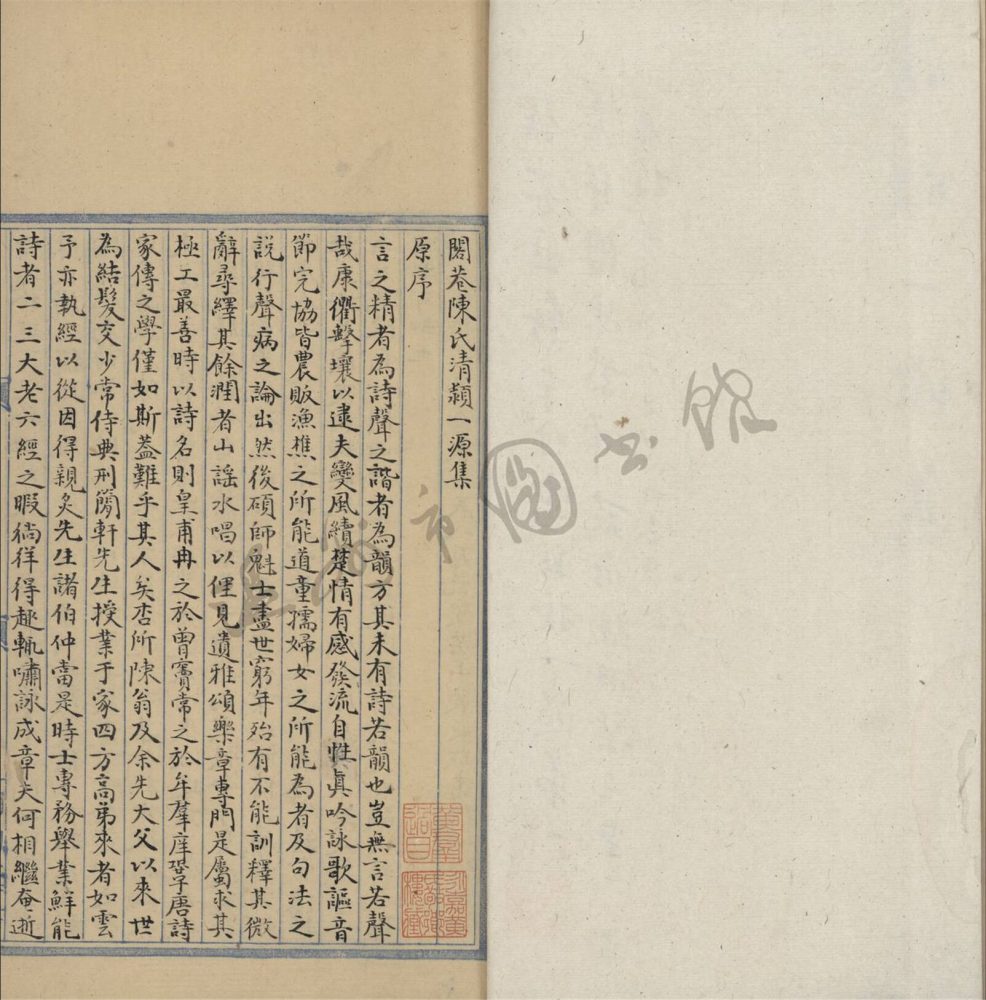 閣巷陳氏清潁一源集
原序
言之精者為詩聲之諧者為韻方其未有詩若韻也豈無言若聲
哉康衢擊壤以逮夫變風續楚情有感發流自性眞吟詠歌謳音
節完協皆農販漁樵之所能道童孺婦女之所能為者及句法之
說行聲病之論出然後碩師魁士盡世窮年殆有不能訓釋其微
辭尋繹其餘潤者山謡水唱以俚見遺雅頌樂章專門是屬求其
極工最善時以詩名則皇甫冉之於曾竇常之於牟羣庠鞏唐詩
家傳之學僅如斯蓋難乎其人矣杏所陳翁及余先大父以來世
為結髮交少常侍典刑簡軒先生授業于家四方高弟來者如雲
予亦執經以從因得親炙先生諸伯仲當是時士專務舉業鮮能
詩者二三大老六經之暇徜徉得趣輒嘯詠成章夫何相繼奄逝
圖書館